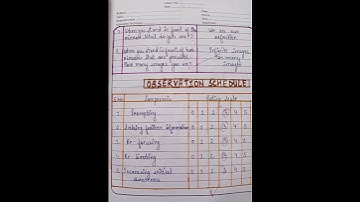 When you stand in front of the
mirror. What do you see?
We see our
reflection
When you stand in front of two
mirrors that are parallel.
How many images you see?
Infinite images
"So many"
images
OBSERVATION SCHEDULE
S.No Components Rating Scale
1. Prompting 0 1 2 3 4 5
2. Seeking further information 0 1 2 3 4 5
3. Re-focusing 0 1 2 3 4 5
4. Re-directing 0 1 2 3 4 5
5. Increasing critical 0 1 2 3 4 5
awareness